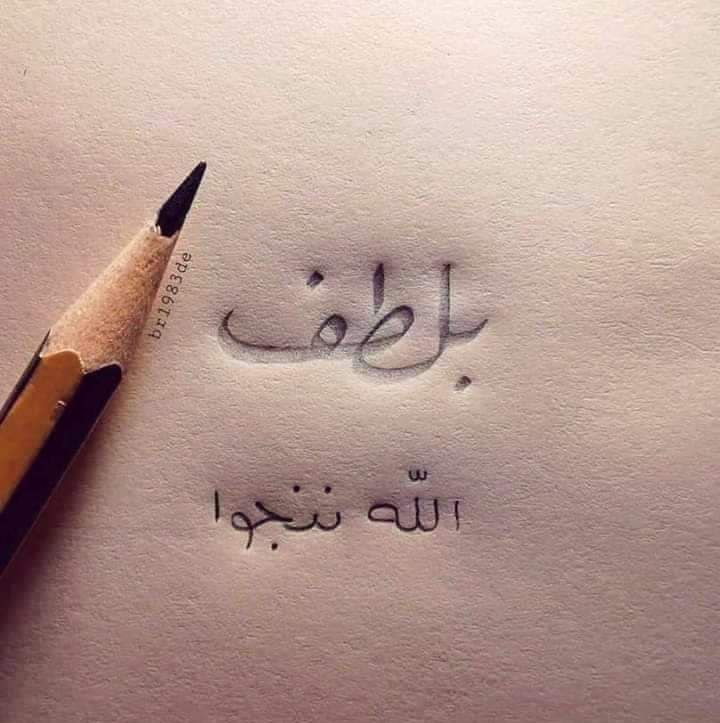 بلطف
الله ننجوا
br1983de